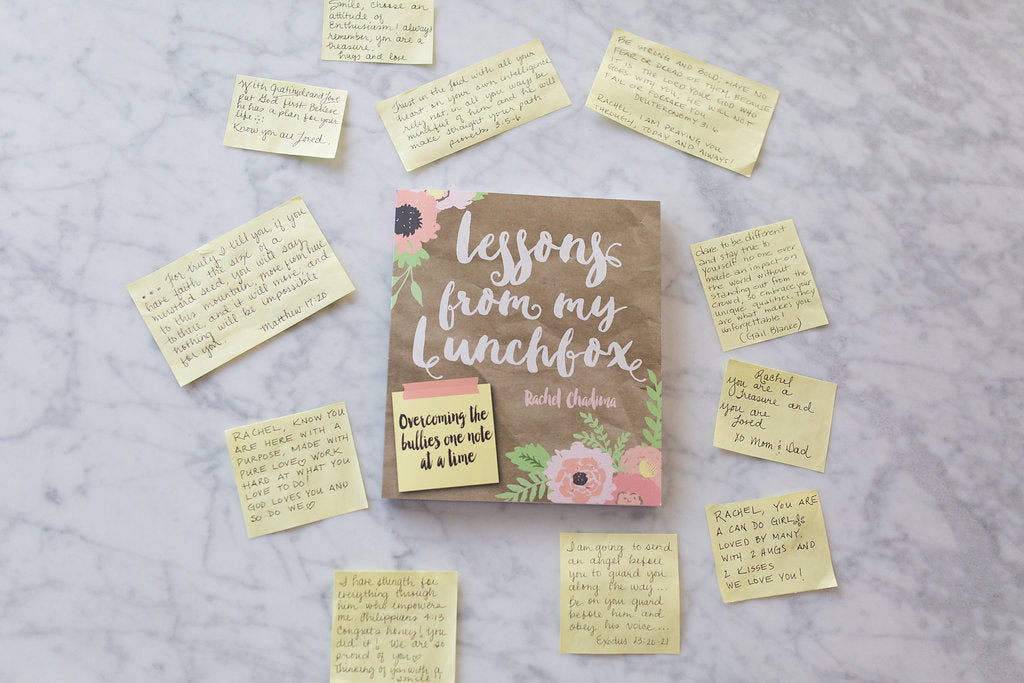 Smile, choose an
attitude of
Enthusiasm! always
remember, you are a
treasure.
hugs and love
With Gratitude and Love
Put God first Believe
he has a plan for your
life :)
Know you are Loved.
Trust in the Lord with all your
heart on your own intelligence
rely not; in all you ways be
mindful of him and he will
make straight your path
Proverbs 3:5-6
BE STRONG AND BOLD: HAVE NO
FEAR OR DREAD OF THEM, BECAUSE
IT IS THE LORD YOUR GOD WHO
GOES WITH YOU, HE WILL NOT
FAIL OR FORSAKE YOU
DEUTERONOMY 31:6
RACHEL I AM PRAYING YOU
THROUGH, TODAY AND ALWAYS!
--- For truly, I tell you, if you
have faith the size of a
mustard seed, you will say
to this mountain, move from here
to there, and it will move; and
nothing will be impossible
for you.
Matthew 17:20
lessons
from my
Lunchbox
Rachel Chadima
Overcoming the
bullies one note
at a time
dare to be different
and stay true to
yourself. no one ever
made an impact on
the world without
standing out from the
crowd, so embrace your
unique qualities. They
are what makes you
unforgettable!
(Gail Blanke)
Rachel
you are a
Treasure and
you are
Loved
XO Mom & Dad
RACHEL, KNOW YOU
ARE HERE WITH A
PURPOSE, MADE WITH
PURE LOVE♡ WORK
HARD AT WHAT YOU
LOVE TO DO!
GOD LOVES YOU AND
SO DO WE♡
RACHEL, YOU ARE
A CAN DO GIRL &
LOVED BY MANY.
WITH 2 HUGS AND
2 KISSES
WE LOVE YOU!
I am going to send
an angel before
you to guard you
along the way...
Be on you guard
before him and
obey his voice...
Exodus 23:20-21
I have strength for
everything through
him who empowers
me Philippians 4:13
Congrats honey! You
did it! We are so
proud of you♡
Thinking of you with a
smile!!